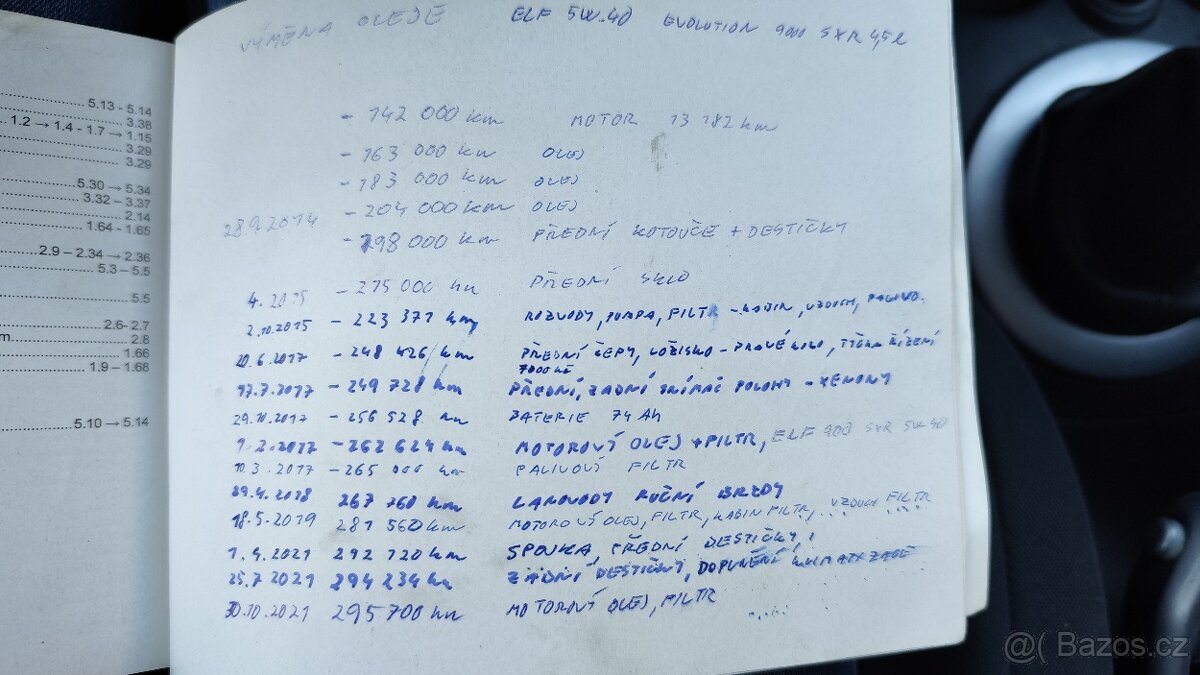 5.13 - 5.14
3.38
1.2 → 1.4 - 1.7 → 1.15
3.29
3.29
5.30 → 5.34
3.32 – 3.37
2.14
1.64 - 1.65
2.9 – 2.34 → 2.36
5.3 – 5.5
5.5
2.6- 2.7
2.8
1.66
1.9 – 1.68
5.10 → 5.14
VÝMĚNA OLEJE ELF 5W-40 EVOLUTION 900 SXR 4,5 l
- 142 000 km MOTOR 13 182 km
- 163 000 km OLEJ
- 183 000 km OLEJ
28.9.2014 - 204 000 km OLEJ
- 198 000 km PŘEDNÍ KOTOUČE + DESTIČKY
4. 2015 - 275 000 km PŘEDNÍ SKLO
2.10.2015 - 223 371 km ROZVODY, PUMPA, FILTR - KABIN, VZDUCH, PALIVO.
20.6.2017 - 248 426 km PŘEDNÍ ČEPY, LOŽISKO - PRAVÉ KOLO, TYČKA ŘÍZENÍ
7000 Kč
17.7.2017 - 249 728 km PŘEDNÍ, ZADNÍ SNÍMAČ POLOHY - XENONY
29.10.2017 - 256 528 km BATERIE 74 Ah
9.2.2017 - 262 624 km MOTOROVÝ OLEJ + FILTR, ELF 900 SXR 5W 40
10.3.2017 - 265 000 km PALIVOVÝ FILTR
29.4.2018 267 760 km LANOVODY RUČNÍ BRZDY
18.5.2019 281 560 km MOTOROVÝ OLEJ, FILTR, KABIN FILTR, VZDUCH FILTR
1.4.2021 292 720 km SPOJKA, PŘEDNÍ DESTIČKY,
25.7.2021 294 234 km ZADNÍ DESTIČKY, DOPLNĚNÍ KLIMATIZACE
30.10.2021 295 700 km MOTOROVÝ OLEJ, FILTR
@( Bazos.cz